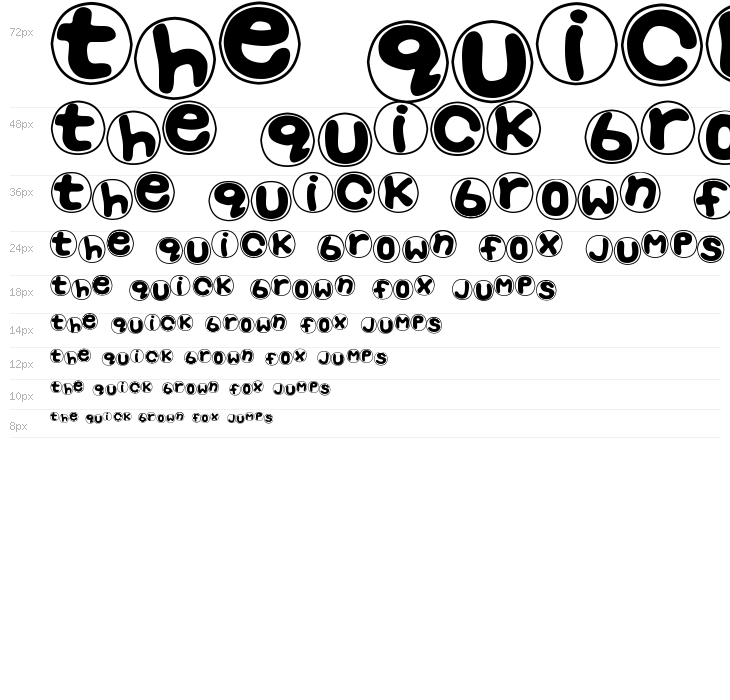 72px the quic
48px the quick bro
36px the quick brown f
24px the quick brown fox jumps
18px the quick brown fox jumps
14px the quick brown fox jumps
12px the quick brown fox jumps
10px the quick brown fox jumps
8px the quick brown fox jumps